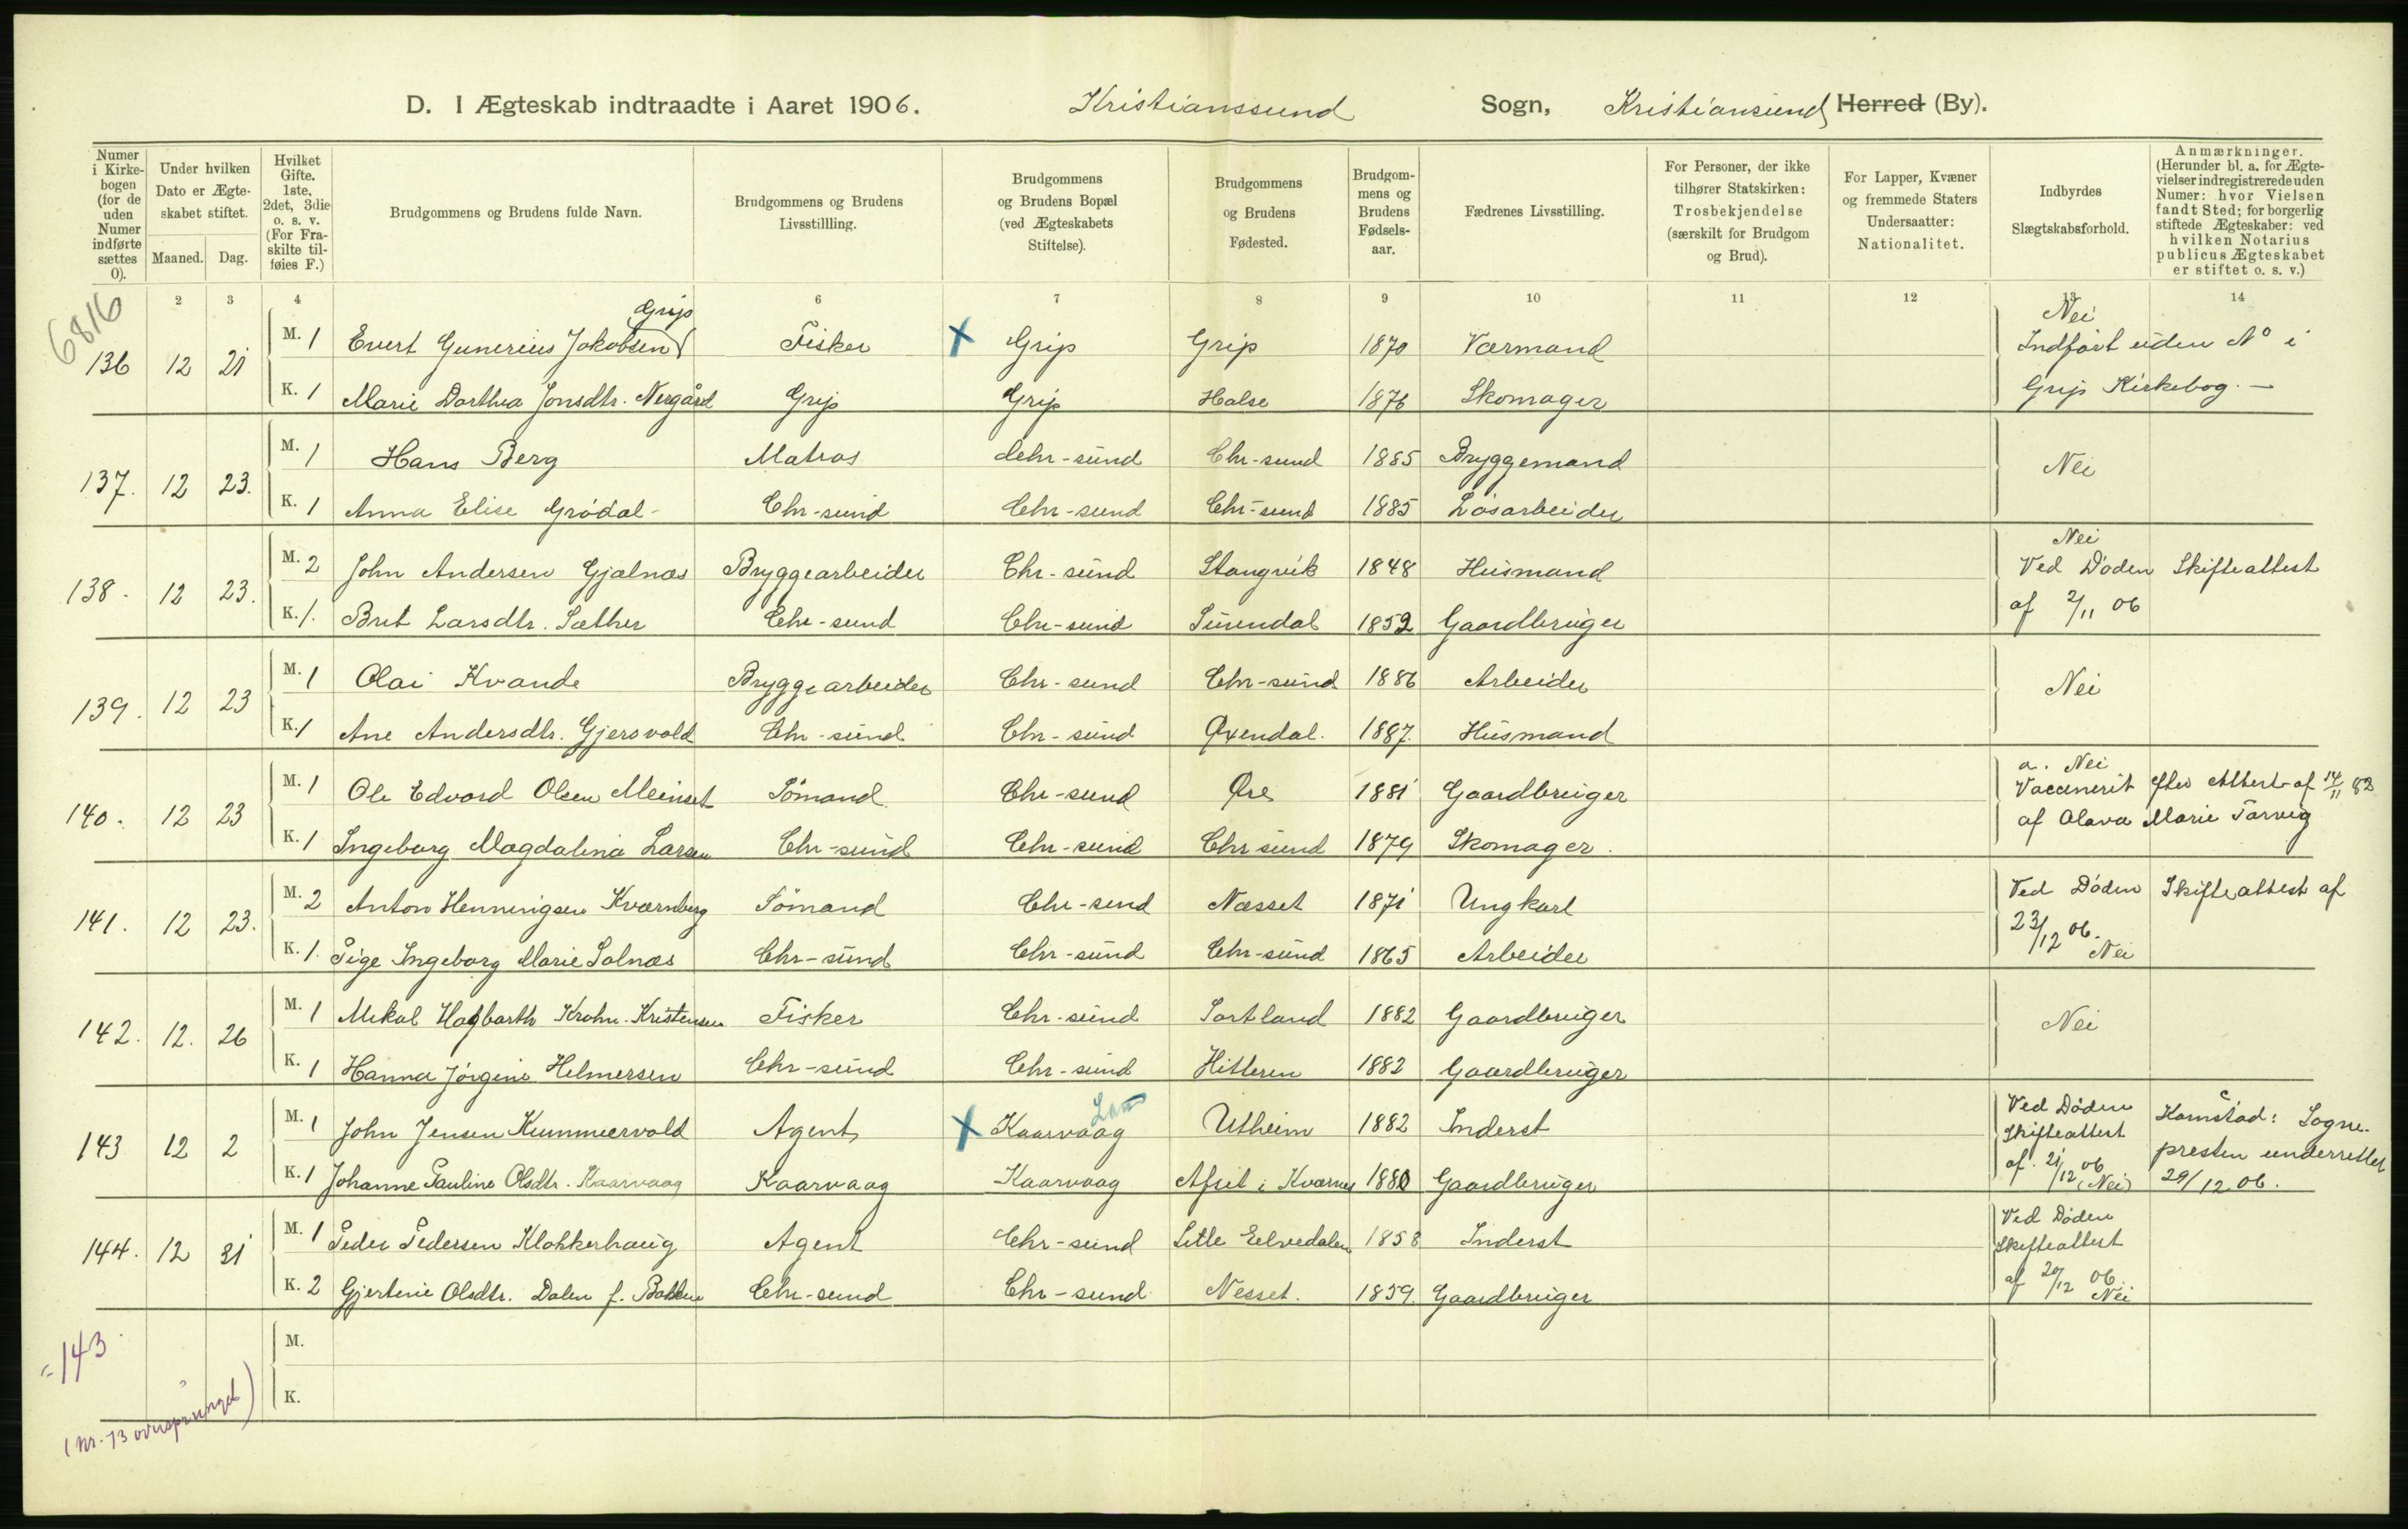 D. I Ægteskab indtraadte i Aaret 1906. Kristianssund Sogn, Kristiansund Herred (By).
Numer i Kirkebogen (for de uden Numer indførte sættes 0).
Under hvilken Dato er Ægteskabet stiftet.
Maaned. Dag.
Hvilket Gifte. 1ste, 2det, 3die o. s. v. (For Fraskilte tilføies F.)
Brudgommens og Brudens fulde Navn.
Brudgommens og Brudens Livsstillling.
Brudgommens og Brudens Bopæl (ved Ægteskabets Stiftelse).
Brudgommens og Brudens Fødested.
Brudgommens og Brudens Fødselsaar.
Fædrenes Livsstilling.
For Personer, der ikke tilhører Statskirken: Trosbekjendelse (særskilt for Brudgom og Brud).
For Lapper, Kvæner og fremmede Staters Undersaatter: Nationalitet.
Indbyrdes Slægtskabsforhold.
Anmærkninger. (Herunder bl. a. for Ægtevielser indregistrerede uden Numer: hvor Vielsen fandt Sted; for borgerlig stiftede Ægteskaber: ved hvilken Notarius publicus Ægteskabet er stiftet o. s. v.)
2 3 4 6 7 8 9 10 11 12 13 14
6816
136 12 21 M. 1 Evert Gunerius Jakobsen Grip Fisker X Grip Grip 1870 Værmand Nei
Indført uden No i
K. 1 Marie Dorthea Jonsdtr. Nergård Grip Grip Halse 1876 Skomager Grip Kirkebog. —
137. 12 23. M. 1 Hans Berg Matros Chr-sund Chr-sund 1885 Bryggemand Nei
K. 1 Anna Elise Grødal - Chr-sund Chr-sund Chr-sund 1885 Løsarbeider
138. 12 23. M. 2 John Andersen Gjølnæs Bryggearbeider Chr-sund Stangvik 1848 Husmand Nei
Ved Døden Skifteattest
K. 1. Brit Larsdtr. Sæther Chr-sund Chr-sund Surendal 1852 Gaardbruger af 2/11 06
139. 12 23 M. 1 Olai Kvande Bryggearbeider Chr-sund Chr-sund 1886 Arbeider Nei
K. 1 Ane Andersdtr. Gjersvold Chr-sund Chr-sund Øxendal. 1887. Husmand
140. 12 23 M. 1 Ole Edvard Olsen Meinset Sømand. Chr-sund Øre 1881 Gaardbruger a. Nei
Vaccinerit efter Attest af 14/11 82
K. 1 Ingeborg Magdalina Larsen Chr-sund Chr-sund Chr sund 1879 Skomager. af Olava Marie Tørvig
141. 12 23. M. 2 Anton Henningsen Kværnberg Sømand Chr-sund Næsset 1871 Ungkarl Ved Døden Skifteattest af
K. 1. Pige Ingeborg Marie Solnæs Chr-sund Chr-sund Chr-sund 1865 Arbeider 23/12 06. Nei
142. 12. 26 M. 1 Mikal Hagbarth Krohn Kristensen Fisker Chr-sund Sortland 1882 Gaardbruger Nei
K. 1 Hanna Jørgine Helmersen Chr-sund Chr-sund Hitteren 1882 Gaardbruger
143 12 2 M. 1 John Jensen Kummervold Agent X Kaarvaag Utheim 1882 Inderst Ved Døden Skifteattest Kornstad: Sogne-
presten underrettet
K. 1 Johanne Pauline Olsdtr. Kaarvaag Kaarvaag Kaarvaag i Kværnes 1880 Gaardbruger af. 21/12 06 (Nei) 29/12 06.
144. 12 31 M. 1 Peder Pedersen Klokkerhaug Agent Chr-sund Lille Elvedalen 1858 Inderst Ved Døden
Skifteattest
K. 2 Gjertine Olsdtr. Dalen f. Bakken Chr-sund Chr-sund Nesset. 1859. Gaardbruger af 20/12 06. Nei
M.
K.
= 143
(nr. 73 oversprunget)